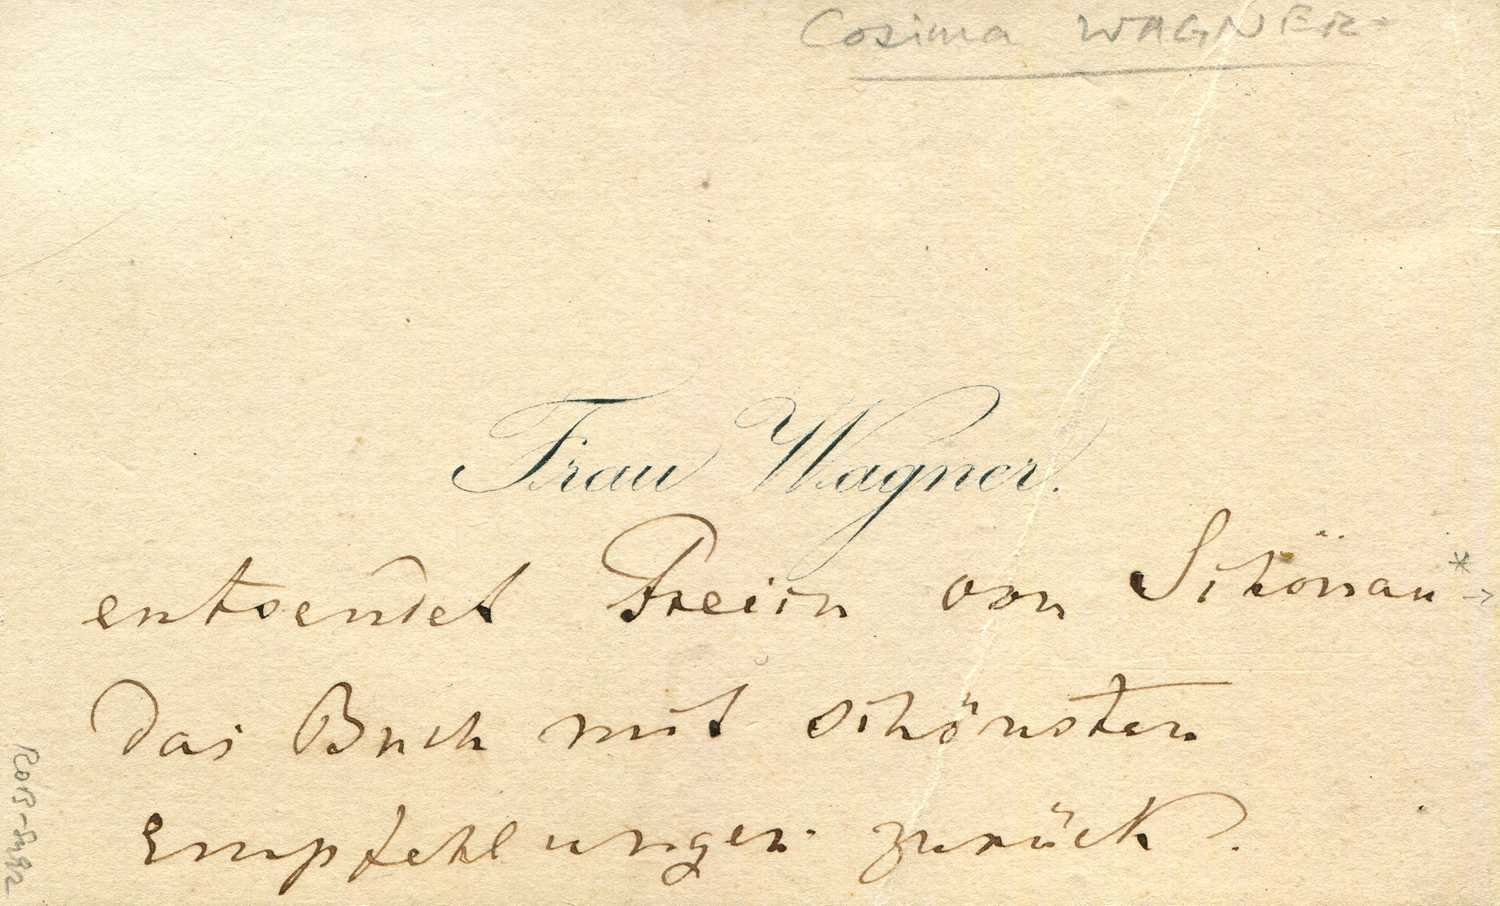 Cosima WAGNER
Frau Wagner.
entsendet Freiin von Schönau * →
das Buch mit schönsten
Empfehlungen zurück.